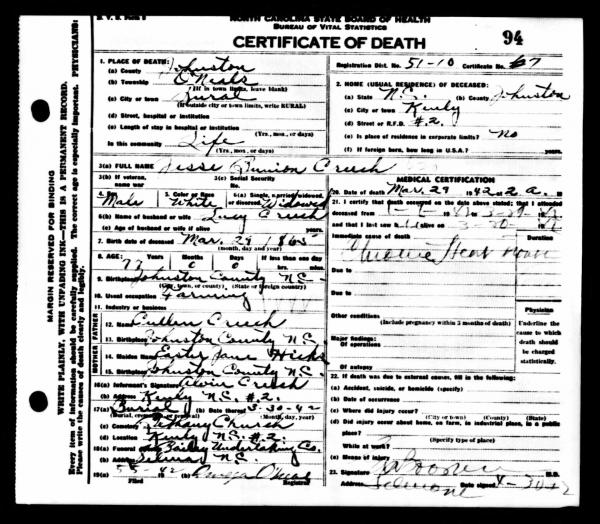 NORTH CAROLINA STATE BOARD OF HEALTH
BUREAU OF VITAL STATISTICS
CERTIFICATE OF DEATH
94
MARGIN RESERVED FOR BINDING
WRITE PLAINLY, WITH UNFADING INK—THIS IS A PERMANENT RECORD.
Every item of information should be carefully supplied. The correct age is especially important. PHYSICIANS:
Please write the causes of death clearly and legibly.
Registration Dist. No. 51-10 Certificate No. 67
1. PLACE OF DEATH:
(a) County Johnston
(b) Township O'Neals
(If in town limits, leave blank)
(c) City or town Rural
(If outside city or town limits, write RURAL)
(d) Street, hospital or institution
(e) Length of stay in hospital or institution
(Yrs., mos., or days)
In this community Life
(Yrs., mos., or days)
2. HOME (USUAL RESIDENCE) OF DECEASED:
(a) State N.C. (b) County Johnston
(c) City or town Kenly
(d) Street or R.F.D. #2.
(e) Is place of residence in corporate limits? No
(f) If foreign born, how long in U.S.A.? years
3(a) FULL NAME Jesse Runion Creech
3(b) If veteran, name war
3(c) Social Security No.
4. Sex Male
5. Color or Race White
6(a) Single, married, widowed, divorced Widowed
6(b) Name of husband or wife Lucy Creech
(c) Age of husband or wife if alive years
7. Birth date of deceased Mar. 29 1865
(month, day and year)
8. AGE: Years 77 Months 0 Days 0 If less than one day
hrs. min.
9. Birthplace Johnston County N.C.
(City, town, or county) (State or foreign country)
10. Usual occupation Farming
11. Industry or business
FATHER
12. Name Cullen Creech
13. Birthplace Johnston County N.C.
MOTHER
14. Maiden Name Easter Jane Hicks
15. Birthplace Johnston County N.C.
16(a) Informant's Signature Alvin Creech
(b) Address Kenly N.C. #2.
17(a) Burial (b) Date thereof 3-30-42
(Burial, cremation, or other) (Month, day, year)
(c) Cemetery Bethany Church
(d) Location Kenly N.C. #2.
18(a) Funeral Undertaking Co.
(b) Address Selma N.C.
19(a) 42 O'Neal
Registrar
MEDICAL CERTIFICATION
20. Date of death Mar. 29 1942 2 a. M
21. I certify that death occurred on the date above stated; that I attended
deceased from
and that I last saw h alive on
Immediate cause of death Duration
Due to
Due to
Other conditions
(Include pregnancy within 3 months of death)
Major findings:
Of operations
Of autopsy
Physician
Underline the cause to which death should be charged statistically.
22. If death was due to external causes, fill in the following:
(a) Accident, suicide, or homicide (specify)
(b) Date of occurrence
(c) Where did injury occur?
(City or town) (County) (State)
(d) Did injury occur about home, on farm, in industrial place, in a public
place?
(Specify type of place)
While at work?
(e) Means of injury
23. Signature M.D.
Address Date signed